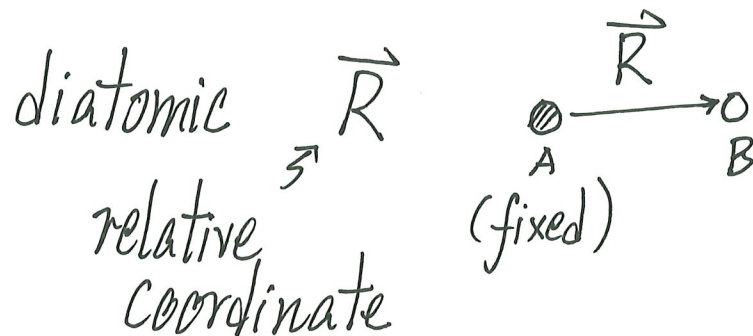 diatomic R⃗
relative
coordinate
R⃗
A B
(fixed)